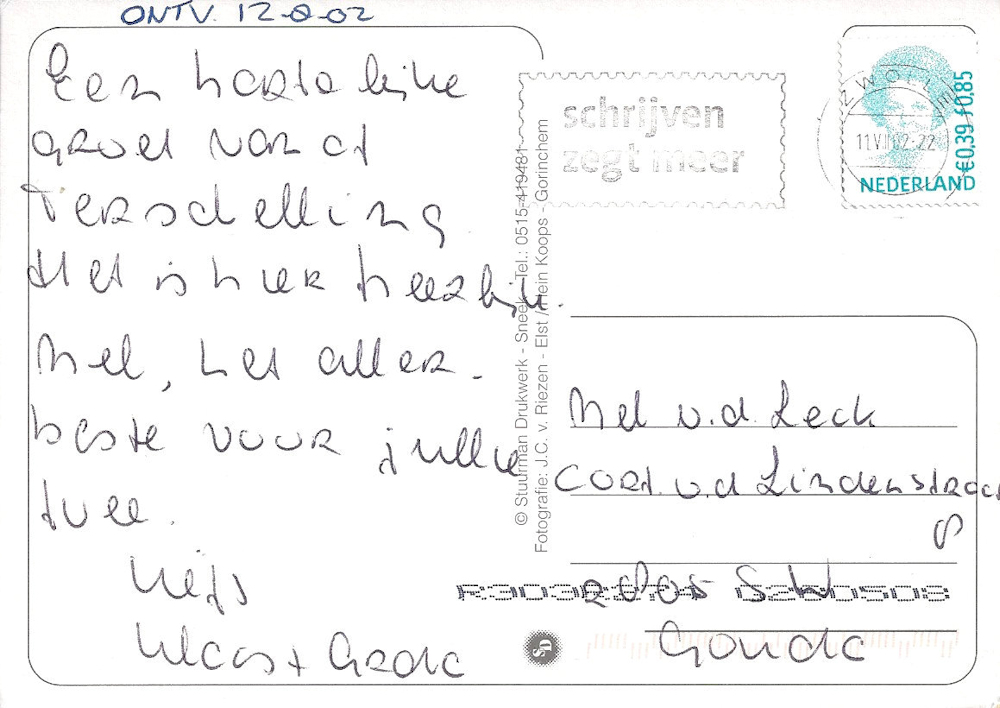 ONTV. 12-8-02
Een hartelijke
groet vanaf
Terschelling
Het is hier heerlijk.
Mel, het aller-
beste voor jullie
twee.
Liefs
Klaas + Grada
© Stuurman Drukwerk - Sneek - Tel.: 0515-419481
Fotografie: J.C. v. Riezen - Elst / Hein Koops - Gorinchem
schrijven
zegt meer
ZWOLLE
11.VIII.02-22
€0,39 f0,85
NEDERLAND
Mel v.d. Leck
Cort. v.d. Lindenstraat
8
Gouda
SD